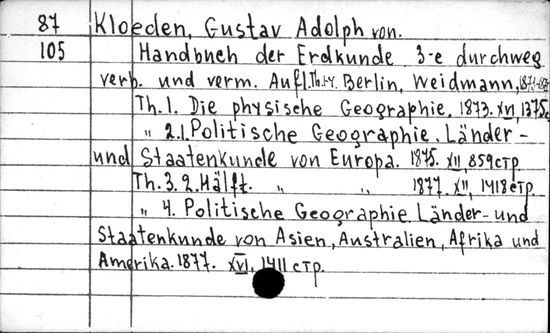 87 Kloeden, Gustav Adolph von.
105 Handbuch der Erdkunde 3-e durchweg
verb. und verm. Aufl. Th.1-4. Berlin, Weidmann,
Th.1. Die physische Geographie. 1873. XVI, 1375c.
" 2.1. Politische Geographie. Länder-
und Staatenkunde von Europa. 1875. XII, 859 стр
Th.3.2. Hälft. " " 1877. XII, 1418 стр.
" 4. Politische Geographie. Länder- und
Staatenkunde von Asien, Australien, Afrika und
Amerika. 1877. XVI, 1411 стр.